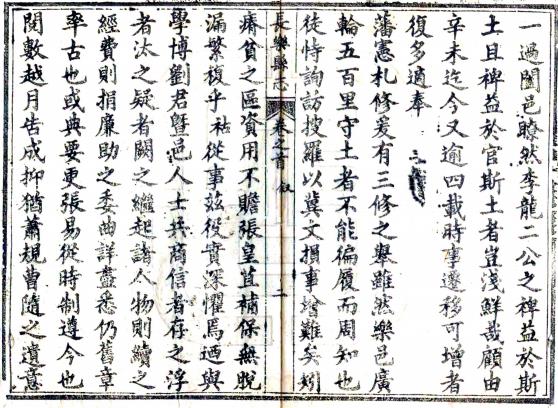 一過闔邑瞭然李龍二公之裨益於斯
土且裨益於官斯土者豈淺鮮哉顧由
辛未迄今又逾四載時事遷移可增者
復多適奉
藩憲札修爰有三修之舉雖然樂邑廣
輪五百里守土者不能徧履而周知也
徒恃詢訪搜羅以冀文損事增難矣矧
長樂縣志 卷之首 叙 二
瘠貧之區資用不贍張皇苴補保無脫
漏繁複乎 祜從事兹役實深懼焉迺與
學博劉君暨邑人士共商信者存之浮
者汰之疑者闕之繼起諸人物則續之
經費則捐廉助之委曲詳盡悉仍舊章
率古也或典要更張易從時制遵今也
閱數越月告成抑猶蕭規曹隨之遺意